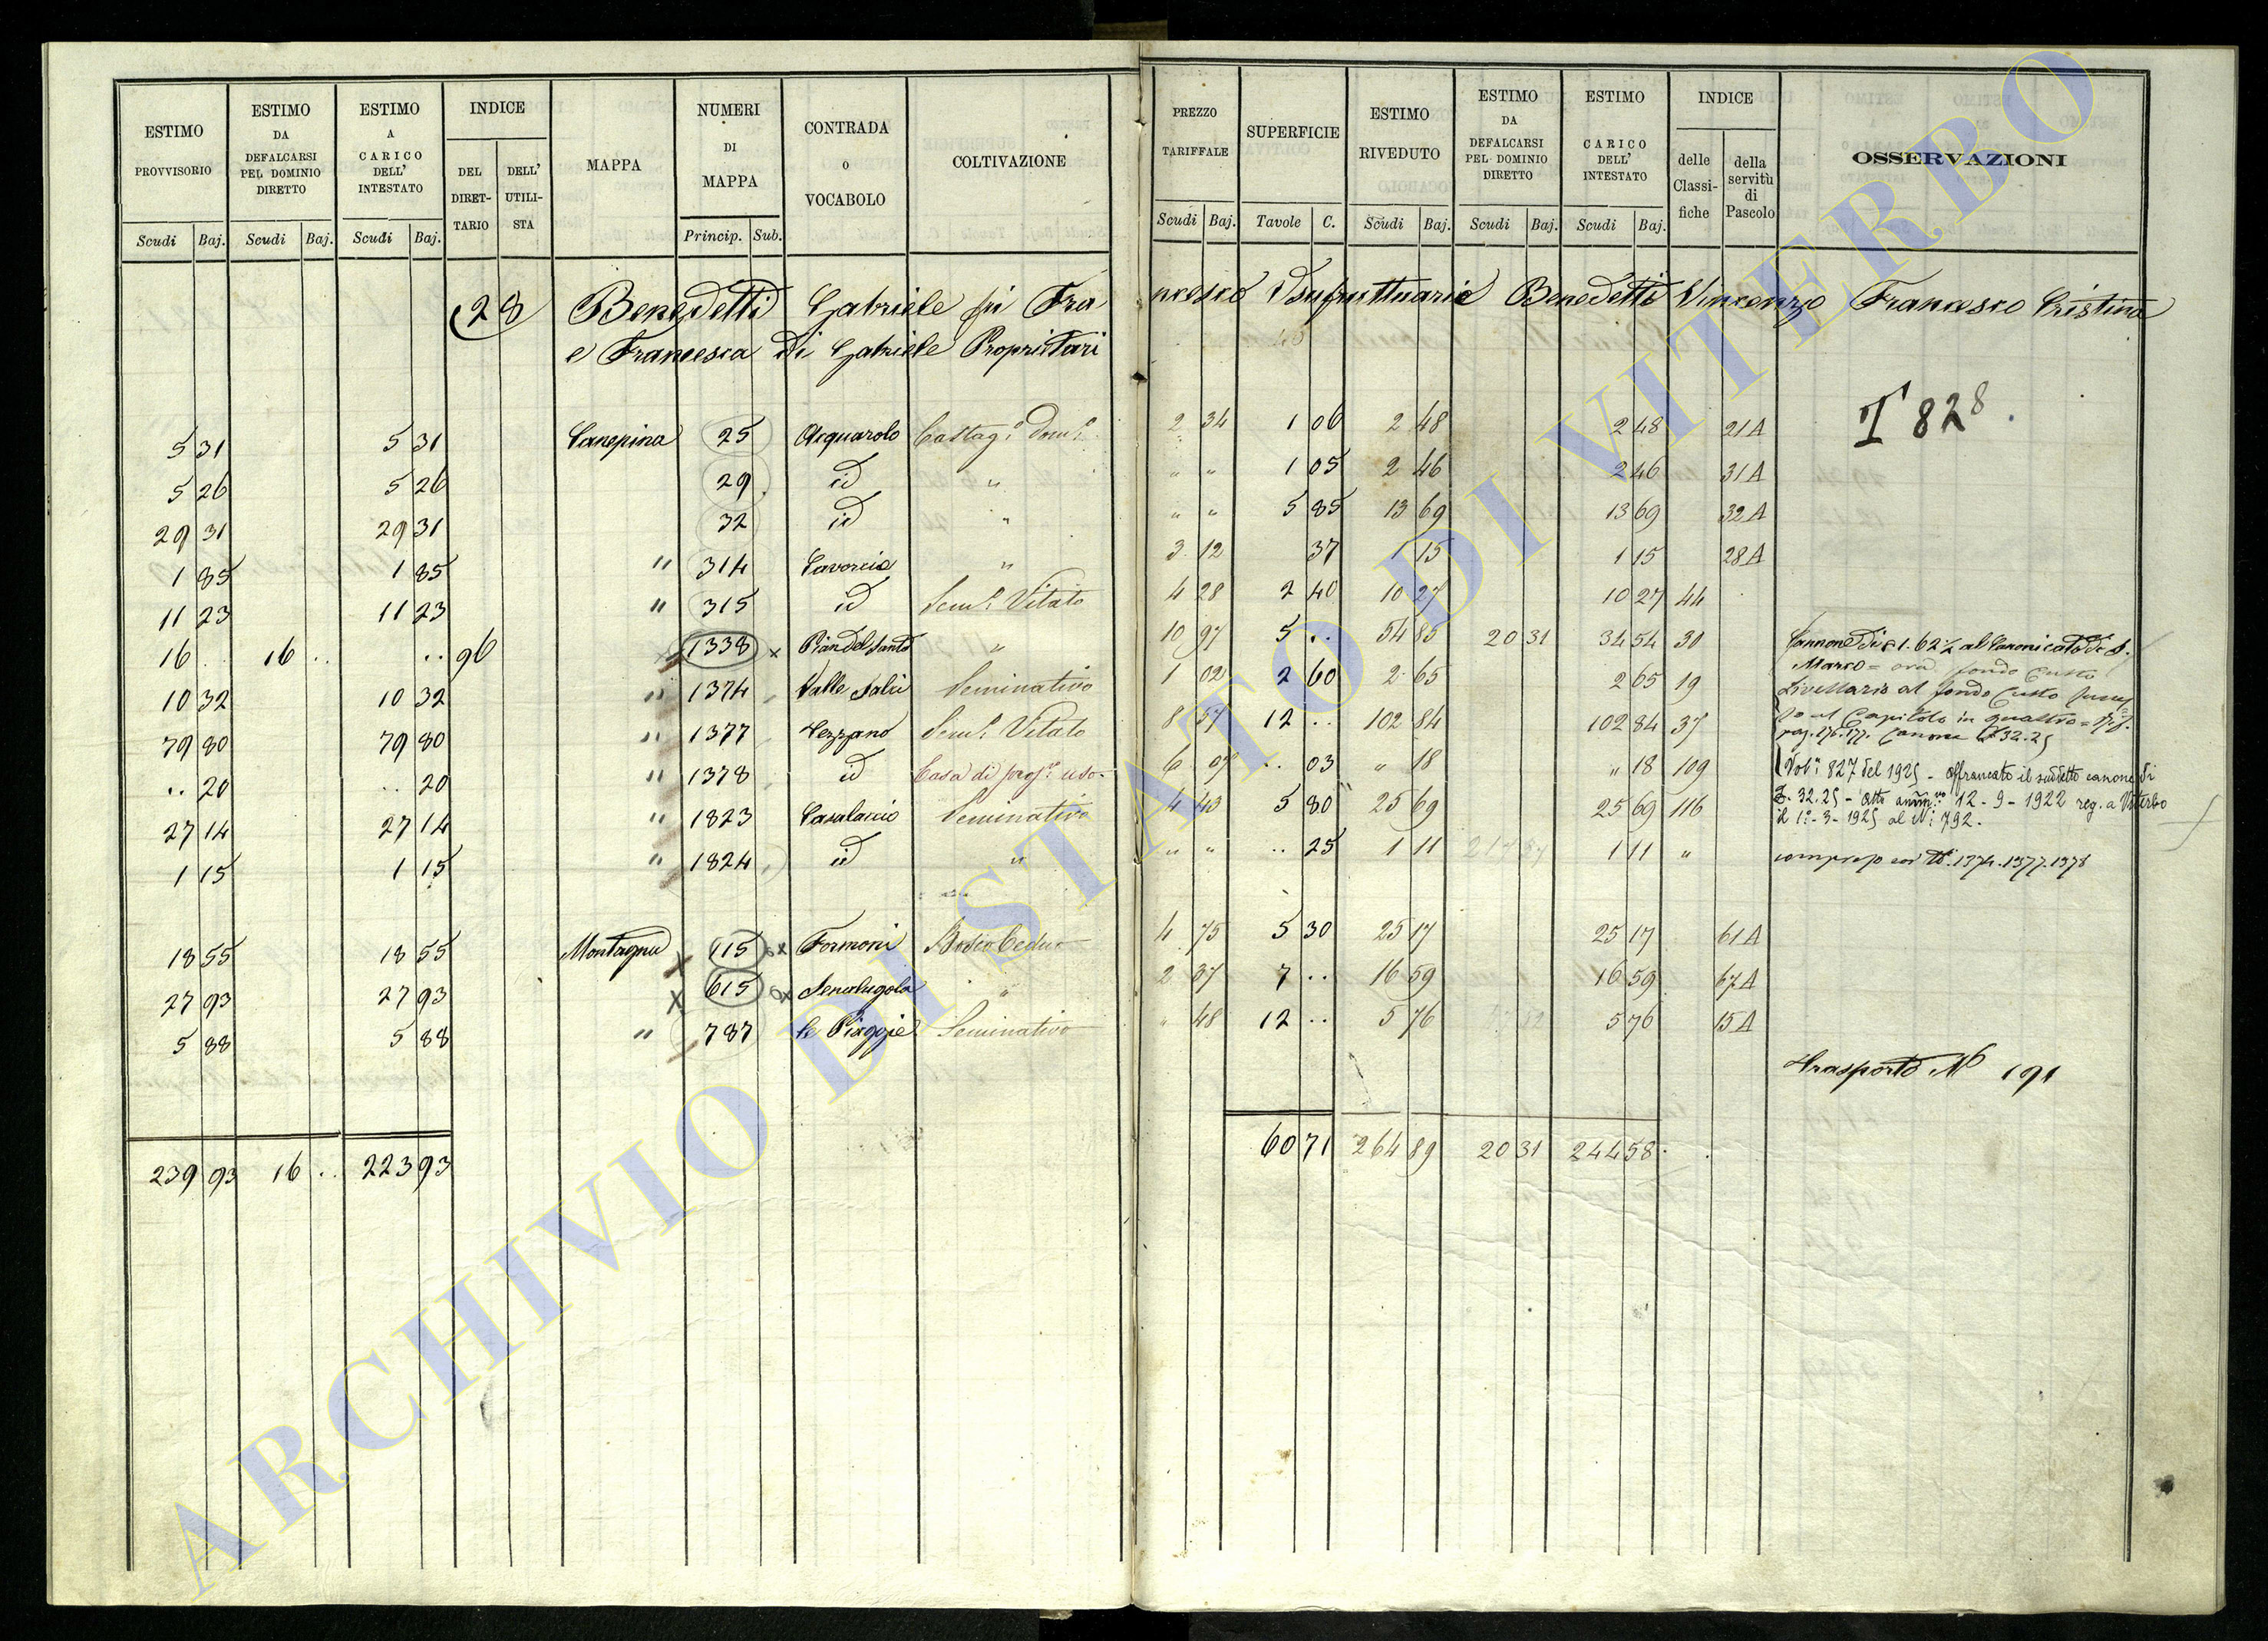 ESTIMO PROVVISORIO | ESTIMO DA DEFALCARSI PEL DOMINIO DIRETTO | ESTIMO A CARICO DELL' INTESTATO | INDICE | MAPPA | NUMERI DI MAPPA | CONTRADA O VOCABOLO | COLTIVAZIONE | PREZZO TARIFFALE | SUPERFICIE | ESTIMO RIVEDUTO | ESTIMO DA DEFALCARSI PEL DOMINIO DIRETTO | ESTIMO CARICO DELL' INTESTATO | INDICE | OSSERVAZIONI
DEL DIRETTARIO | DELL' UTILISTA | delle Classifiche | della servitù di Pascolo
Scudi | Baj. | Scudi | Baj. | Scudi | Baj. | Princip. | Sub. | Scudi | Baj. | Tavole | C. | Scudi | Baj. | Scudi | Baj. | Scudi | Baj.
28 Benedetti Gabriele fu Francesco Usufruttuario Benedetti Vincenzo Francesco Cristina
e Francesca di Gabriele Proprietari
T 828.
5 31 | 5 31 | Canepina | 25 | Acquarolo | Castag.o Dom.o | 2 34 | 1 06 | 2 48 | 2 48 | 21A
5 26 | 5 26 | 29 | id | " | " " | 1 05 | 2 46 | 2 46 | 31A
29 31 | 29 31 | 32 | id | " | " " | 5 85 | 13 69 | 13 69 | 32A
1 85 | 1 85 | " | 314 | " | 3 12 | 37 | 1 15 | 1 15 | 28A
11 23 | 11 23 | " | 315 | id | Sem.o Vitato | 4 28 | 2 40 | 10 27 | 10 27 | 44
16 .. | 16 .. | .. | 96 | 1338 x | Pian del Santo | " | 10 97 | 5 .. | 54 85 | 20 31 | 34 54 | 30 | Cannone di 1.62½ al Canonicato di S.
Marco = ora fondo Culto
10 32 | 10 32 | " | 1374 | Valle | Seminativo | 1 02 | 2 60 | 2 65 | 2 65 | 19 | Livellario al fondo Culto
79 80 | 79 80 | " | 1377 | Sem.o Vitato | 8 57 | 12 .. | 102 84 | 102 84 | 37 | al Capitolo in quattro
pag. 176.177. Canone £ 32.25
.. 20 | .. 20 | " | 1378 | id | Casa di prop.o uso | 6 07 | .. 03 | " 18 | " 18 | 109 | Vol. 827 del 1925 - Affrancato il suddetto canone di
27 14 | 27 14 | " | 1823 | Casalaccio | Seminativo | 4 43 | 5 80 | 25 69 | 25 69 | 116 | £. 32.25 - Atto 12-9-1922 reg. a Viterbo
il 1°-3-1925 al N° 792.
1 15 | 1 15 | " | 1824 | id | " | " " | .. 25 | 1 11 | 1 11 | " | 1374.1377.1378
18 55 | 18 55 | Montagna | x 115 x | Formoni | Bosco Ceduo | 4 75 | 5 30 | 25 17 | 25 17 | 61A
27 93 | 27 93 | x 615 x | " | 2 37 | 7 .. | 16 59 | 16 59 | 67A
5 88 | 5 88 | " | 787 | le Piaggie | Seminativo | " 48 | 12 .. | 5 76 | 5 76 | 15A
Trasporto N° 191
239 93 | 16 .. | 223 93 | 60 71 | 264 89 | 20 31 | 244 58
ARCHIVIO DI STATO DI VITERBO